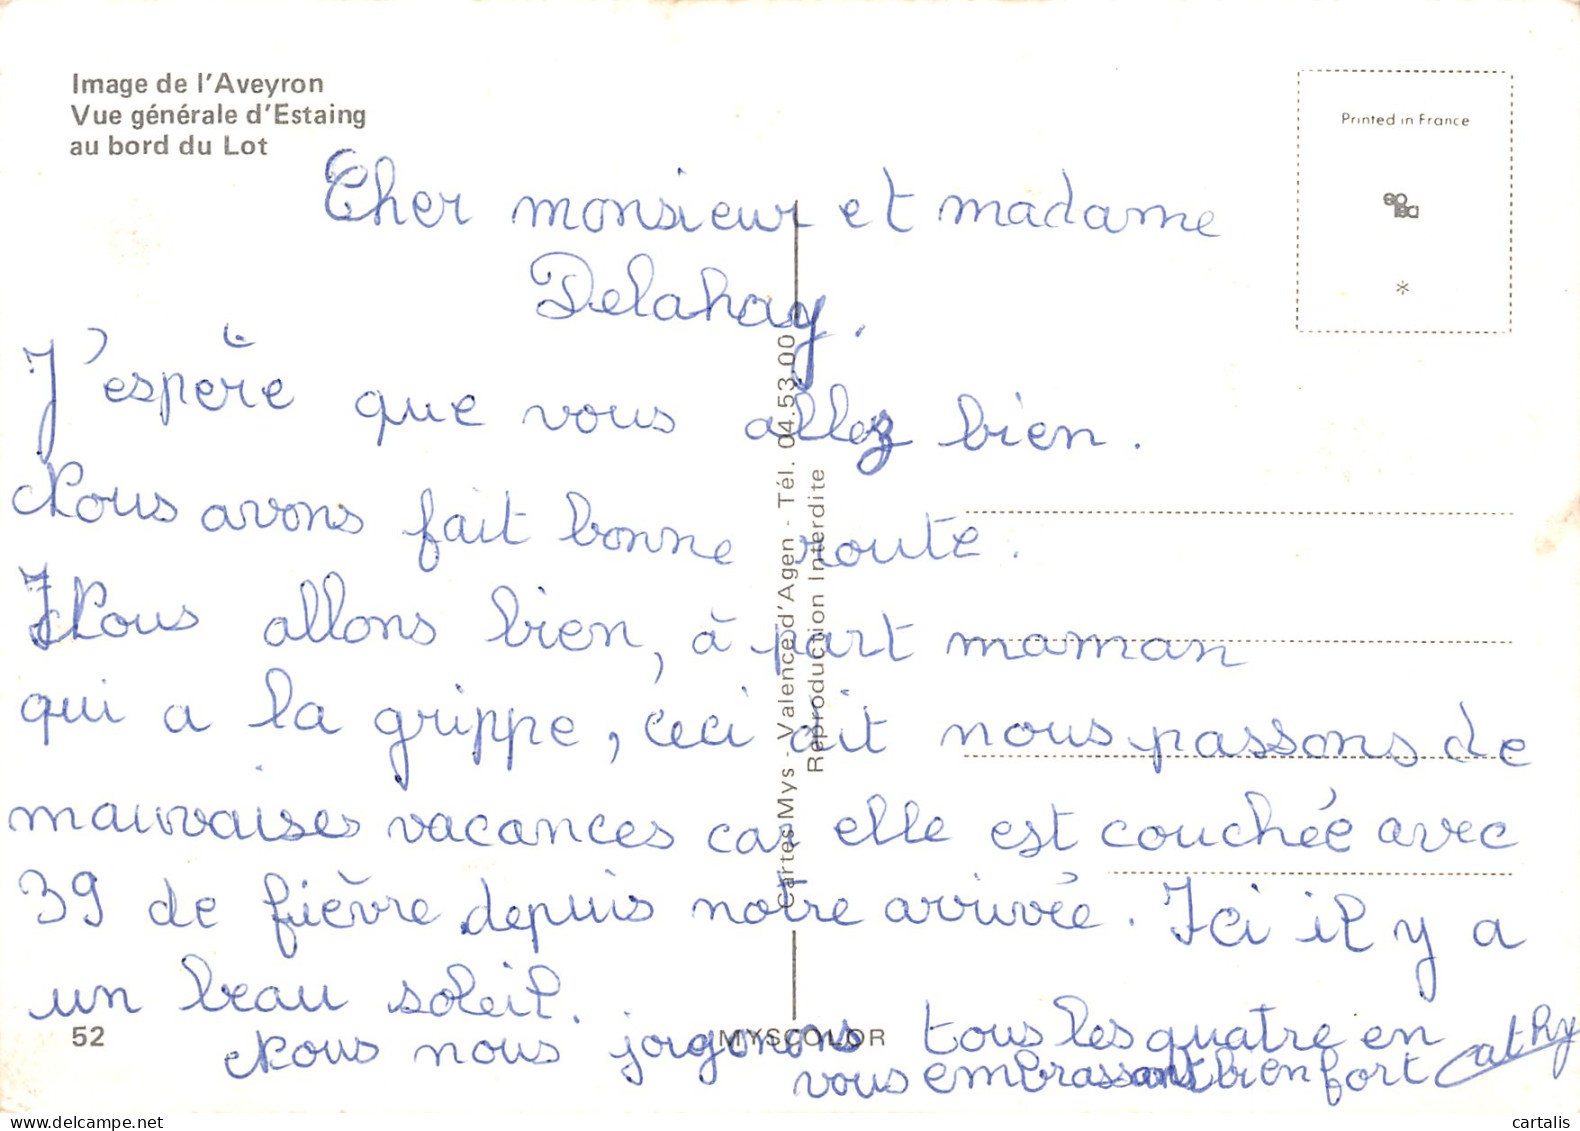 Image de l'Aveyron
Vue générale d'Estaing
au bord du Lot
Printed in France
Cher monsieur et madame
Delahay.
J'espère que vous allez bien.
Nous avons fait bonne route.
Nous allons bien, à part maman
qui a la grippe, ceci dit nous passons de
mauvaises vacances car elle est couchée avec
39 de fièvre depuis notre arrivée. Ici il y a
un beau soleil.
Nous nous joignons tous les quatre en
vous embrassant bien fort Cathy
52
MYSCOLOR
Cartes Mys - Valence d'Agen - Tél. 04.53.00
Reproduction Interdite
cartalis